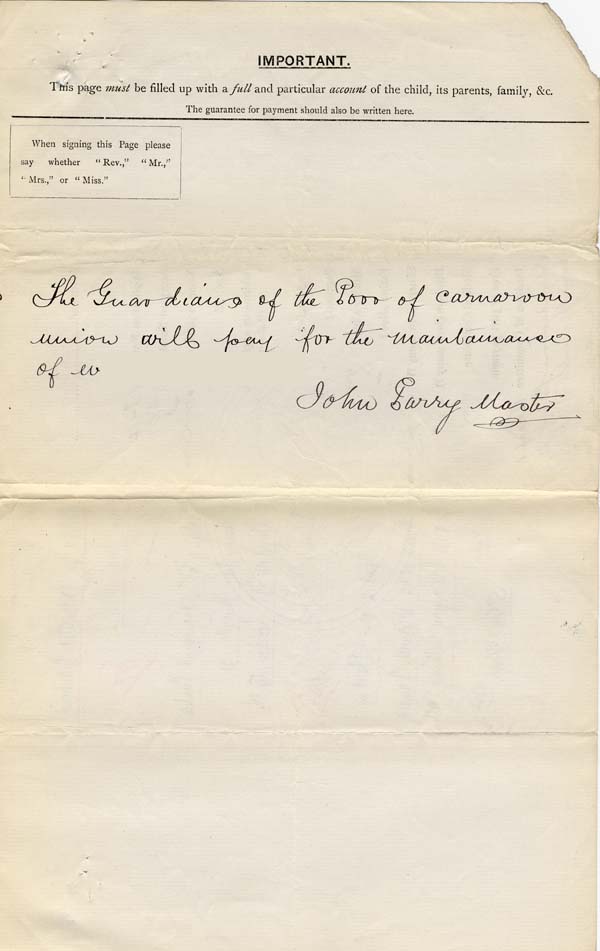 IMPORTANT.
This page must be filled up with a full and particular account of the child, its parents, family, &c.
The guarantee for payment should also be written here.
When signing this Page please
say whether "Rev.," "Mr.,"
"Mrs.," or "Miss."
The Guardians of the Poor of Carnarvon
union will pay for the maintainance
of
John Parry Master